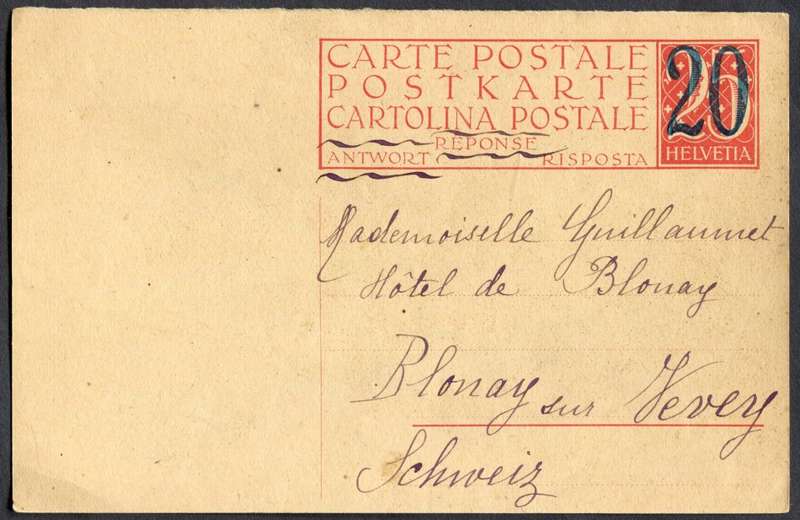 CARTE POSTALE
POSTKARTE
CARTOLINA POSTALE
RÉPONSE
ANTWORT RISPOSTA
20
HELVETIA
Mademoiselle Guillaumet
Hôtel de Blonay
Blonay sur Vevey
Schweiz